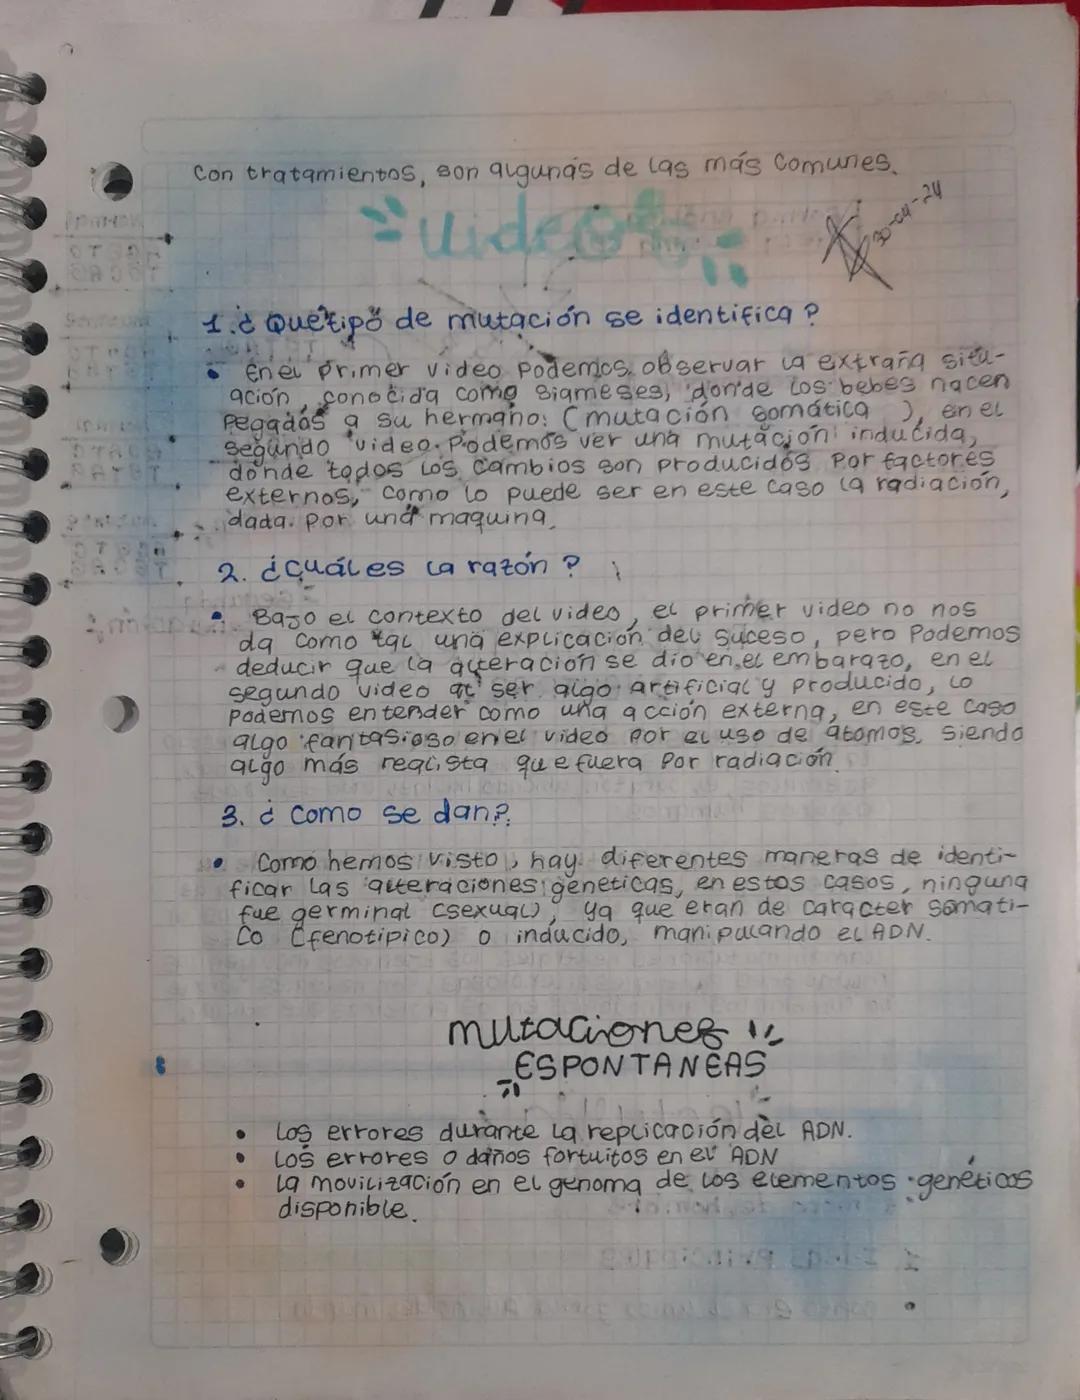 Con tratamientos, son algunas de las más comunes.
Videos
30-04-24
1. ¿Que tipo de mutación se identifica?
• En el primer video podemos observar la extraña situ-
ación, conocida como siameses, donde los bebes nacen
pegados a su hermano: (mutación somática ), en el
segundo video. Podemos ver una mutación inducida,
donde todos los cambios son producidos por factores
externos, como lo puede ser en este caso la radiación,
dada por una maquina.
2. ¿cuál es la razón?
• Bajo el contexto del video, el primer video no nos
da como tal una explicación del suceso, pero Podemos
deducir que la alteración se dio en el embarazo, en el
segundo video al ser algo artificial y producido, lo
podemos entender como una acción externa, en este caso
algo fantasioso en el video por el uso de átomos, siendo
algo más realista que fuera por radiación.
3. ¿Como se dan?
• Como hemos visto, hay diferentes maneras de identi-
ficar las alteraciones geneticas, en estos casos, ninguna
fue germinal (sexual), ya que eran de caracter somati-
co (fenotipico) o inducido, manipulando el ADN.
mutaciones
ESPONTANEAS
• Los errores durante la replicación del ADN.
• Los errores o daños fortuitos en el ADN
• La movilización en el genoma de los elementos genéticos
disponible.